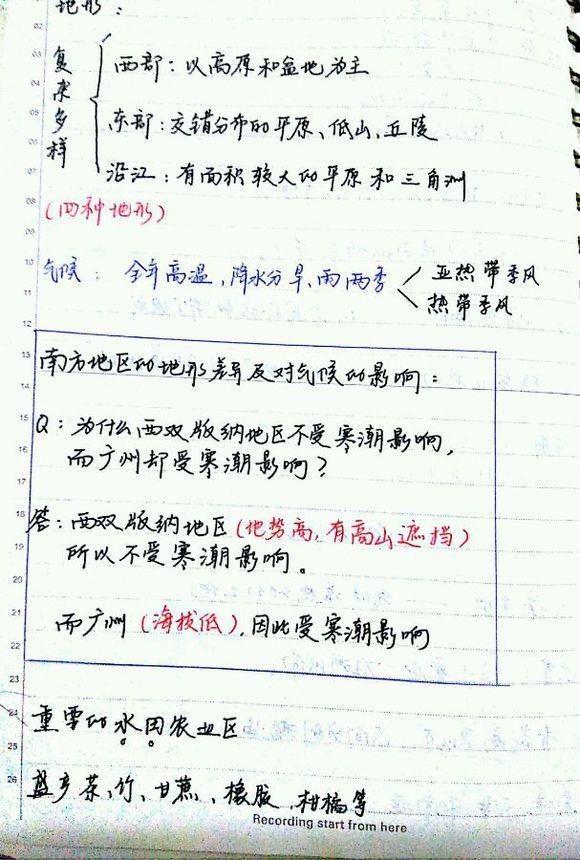 地形：
复杂多样
西部：以高原和盆地为主
东部：交错分布的平原、低山、丘陵
沿江：有面积较大的平原和三角洲
(四种地形)
气候： 全年高温，降水分旱、雨两季
亚热带季风
热带季风
南方地区的地形差异及对气候的影响：
Q：为什么西双版纳地区不受寒潮影响，
而广州却受寒潮影响？
答：西双版纳地区(地势高，有高山遮挡)
所以不受寒潮影响。
而广州(海拔低)，因此受寒潮影响
重要的水田农业区
盛产茶、竹、甘蔗、橡胶、柑橘等
Recording start from here